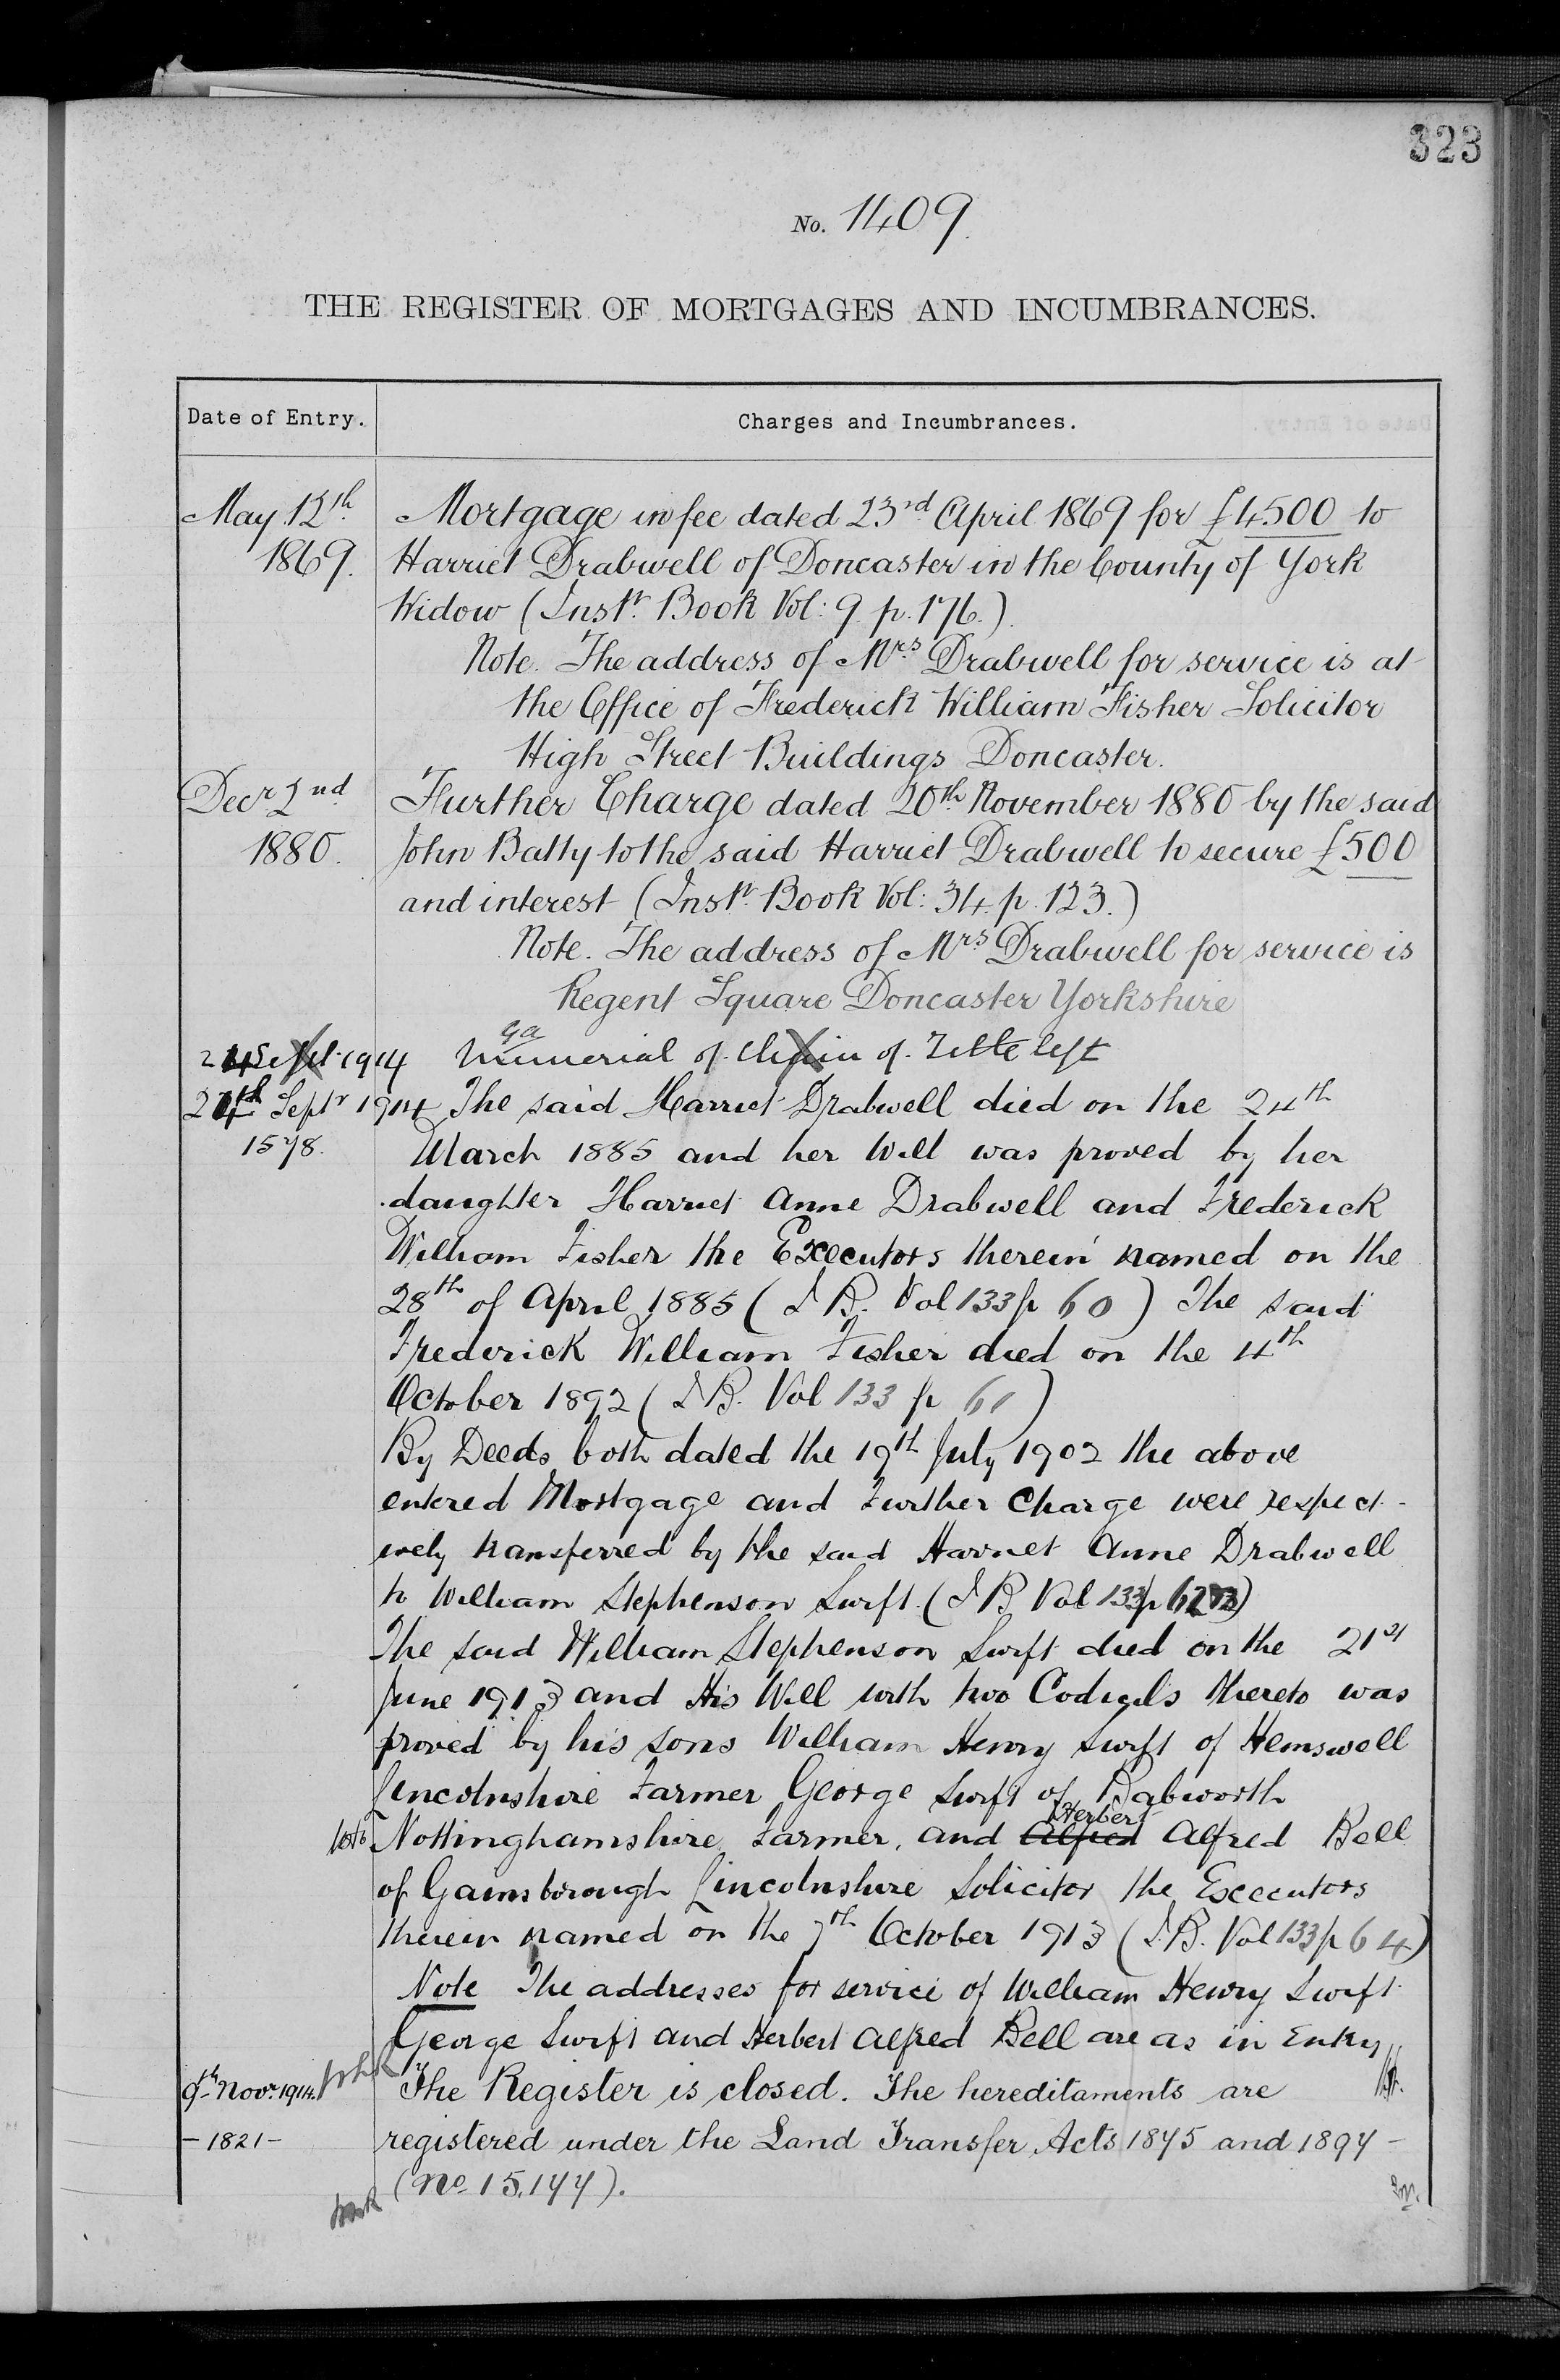 323
No. 1409.
THE REGISTER OF MORTGAGES AND INCUMBRANCES.
Date of Entry.
Charges and Incumbrances.
May 12th 1869.
Mortgage in fee dated 23rd April 1869 for £4500 to
Harriet Drabwell of Doncaster in the County of York
Widow (Instr. Book Vol: 9. p. 176.).
Note. The address of Mrs Drabwell for service is at
the Office of Frederick William Fisher Solicitor
High Street Buildings Doncaster.
Decr. 2nd 1880.
Further Charge dated 20th November 1880 by the said
John Batty to the said Harriet Drabwell to secure £500
and interest (Instr. Book Vol: 34. p. 123.)
Note. The address of Mrs Drabwell for service is
Regent Square Doncaster Yorkshire
24 Sept 1914 Memorial of Chain of Title left
24th Septr 1914 The said Harriet Drabwell died on the 24th
1578.
March 1885 and her Will was proved by her
daughter Harriet Anne Drabwell and Frederick
William Fisher the Executors therein named on the
28th of April 1885 (I B. Vol 133 p 60) The said
Frederick William Fisher died on the 4th
October 1892 (I B. Vol 133 p 61)
By Deeds both dated the 19th July 1902 the above
entered Mortgage and Further Charge were respect-
ively transferred by the said Harriet Anne Drabwell
to William Stephenson Swift. (I B Vol 133 p
The said William Stephenson Swift died on the 21st
June 1913 and His Will with two Codicils thereto was
proved by his sons William Henry Swift of Hemswell
Lincolnshire Farmer George Swift of Babworth
Herbert
Nottinghamshire Farmer, and Alfred Alfred Bell
of Gainsborough Lincolnshire Solicitor the Executors
therein named on the 7th October 1913 (I.B. Vol 133 p 64)
Note The addresses for service of William Henry Swift
George Swift and Herbert Alfred Bell are as in Entry
9th Novr. 1914.
The Register is closed. The hereditaments are
- 1821 -
registered under the Land Transfer Acts 1875 and 1897 -
(No. 15,177).